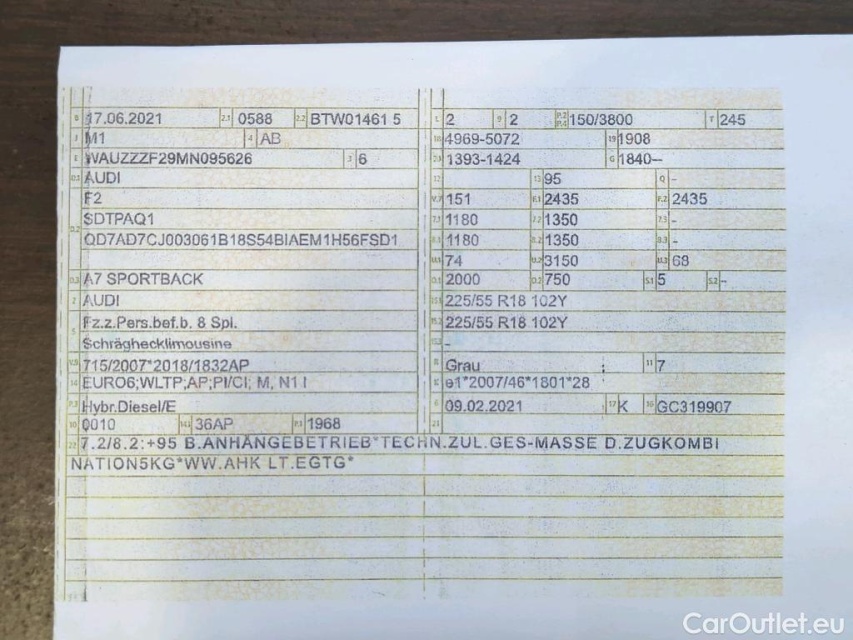 B 17.06.2021 2.1 0588 2.2 BTW01461 5 L 2 9 2 P.2 P.4 150/3800 T 245
J M1 4 AB 18 4969-5072 19 1908
E WAUZZZF29MN095626 3 6 20 1393-1424 G 1840--
D.1 AUDI 12 13 95 Q -
F2 V.7 151 F.1 2435 F.2 2435
SDTPAQ1 7.1 1180 7.2 1350 7.3 -
D.2 QD7AD7CJ003061B18S54BIAEM1H56FSD1 8.1 1180 8.2 1350 8.3 -
U.1 74 U.2 3150 U.3 68
D.3 A7 SPORTBACK O.1 2000 O.2 750 S.1 5 S.2 -
2 AUDI 15.1 225/55 R18 102Y
5 Fz.z.Pers.bef.b. 8 Spl. 15.2 225/55 R18 102Y
Schräghecklimousine 15.3 -
V.9 715/2007*2018/1832AP R Grau 11 7
14 EURO6;WLTP;AP;PI/CI; M, N1 I K e1*2007/46*1801*28
P.3 Hybr.Diesel/E 6 09.02.2021 17 K 16 GC319907
10 0010 14.1 36AP P.1 1968 21
22 7.2/8.2:+95 B.ANHÄNGEBETRIEB*TECHN.ZUL.GES-MASSE D.ZUGKOMBI
NATION5KG*WW.AHK LT.EGTG*
CarOutlet.eu